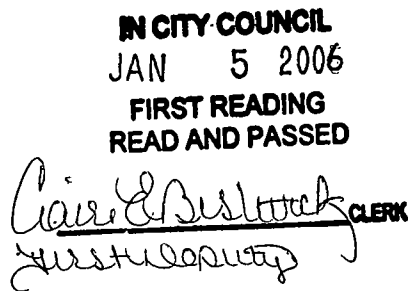 IN CITY COUNCIL
JAN 5 2006
FIRST READING
READ AND PASSED
Claire E Bestwick CLERK
First Deputy